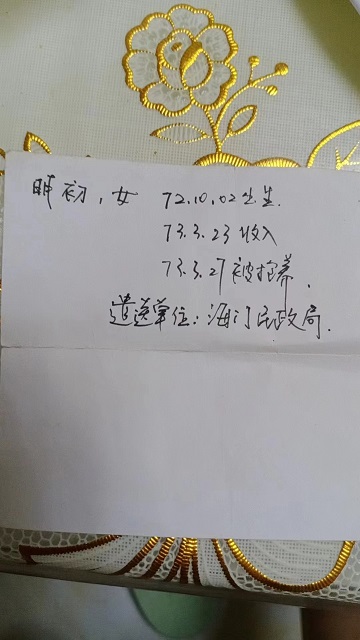 明初，女 72.10.02出生.
73.3.23收入
73.3.27被抱养.
遣送单位：海门民政局.